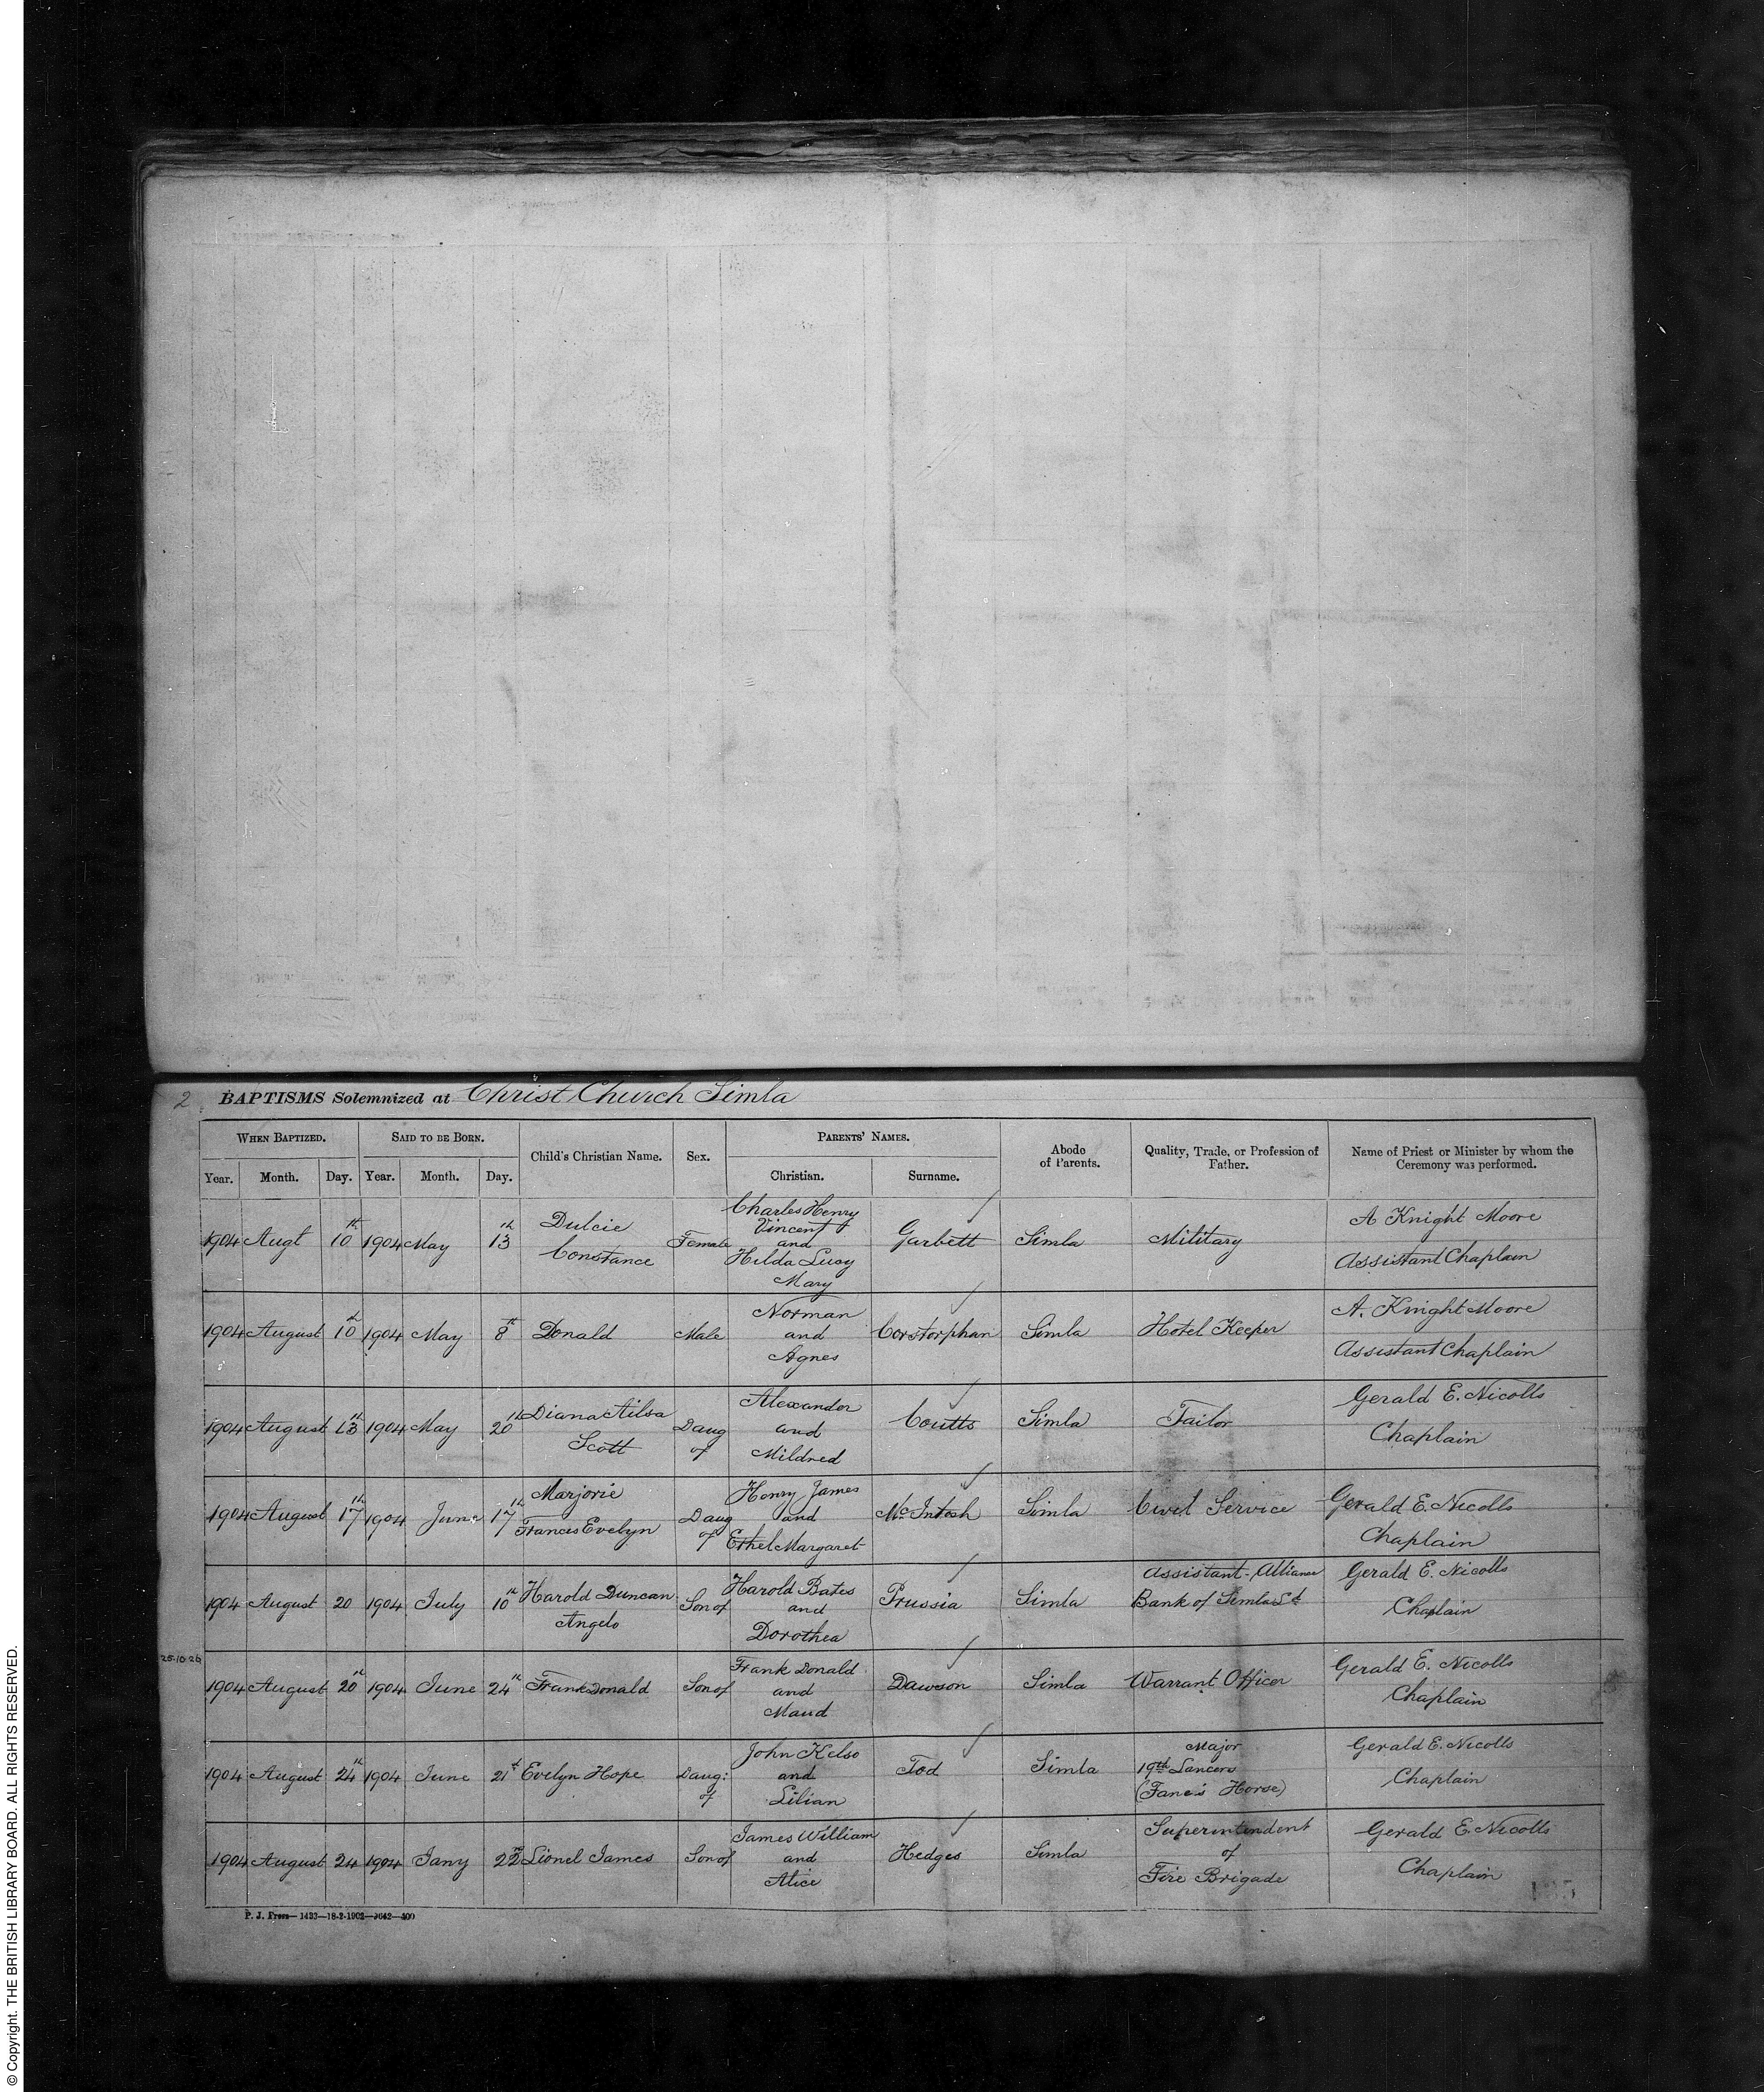 2 BAPTISMS Solemnized at Christ Church Simla
WHEN BAPTIZED. SAID TO BE BORN. Child's Christian Name. Sex. PARENTS' NAMES. Abode of Parents. Quality, Trade, or Profession of Father. Name of Priest or Minister by whom the Ceremony was performed.
Year. Month. Day. Year. Month. Day. Christian. Surname.
1904 Augt 10th 1904 May 13th Dulcie Constance Female Charles Henry Vincent and Hilda Lucy Mary Garbett Simla Military A Knight Moore Assistant Chaplain
1904 August 10th 1904 May 8th Donald Male Norman and Agnes Corstorphan Simla Hotel Keeper A. Knight Moore Assistant Chaplain
1904 August 13th 1904 May 20th Diana Ailsa Scott Daug of Alexander and Mildred Coutts Simla Tailor Gerald E. Nicolls Chaplain
1904 August 17th 1904 June 17th Marjorie Francis Evelyn Daug of Henry James and Ethel Margaret McIntosh Simla Civil Service Gerald E. Nicolls Chaplain
1904 August 20 1904 July 10th Harold Duncan Angelo Son of Harold Bates and Dorothea Prussia Simla Assistant-Alliance Bank of Simla Ld Gerald E. Nicolls Chaplain
25.10.26
1904 August 20th 1904 June 24th Frank Donald Son of Frank Donald and Maud Dawson Simla Warrant Officer Gerald E. Nicolls Chaplain
1904 August 24th 1904 June 21st Evelyn Hope Daug: of John Kelso and Lilian Tod Simla Major 19th Lancers (Fane's Horse) Gerald E. Nicolls Chaplain
1904 August 24 1904 Jany 22nd Lionel James Son of James William and Alice Hedges Simla Superintendent of Fire Brigade Gerald E. Nicolls Chaplain
P. J. Press—1433—18-2-1902—9642—400
© Copyright. THE BRITISH LIBRARY BOARD. ALL RIGHTS RESERVED.